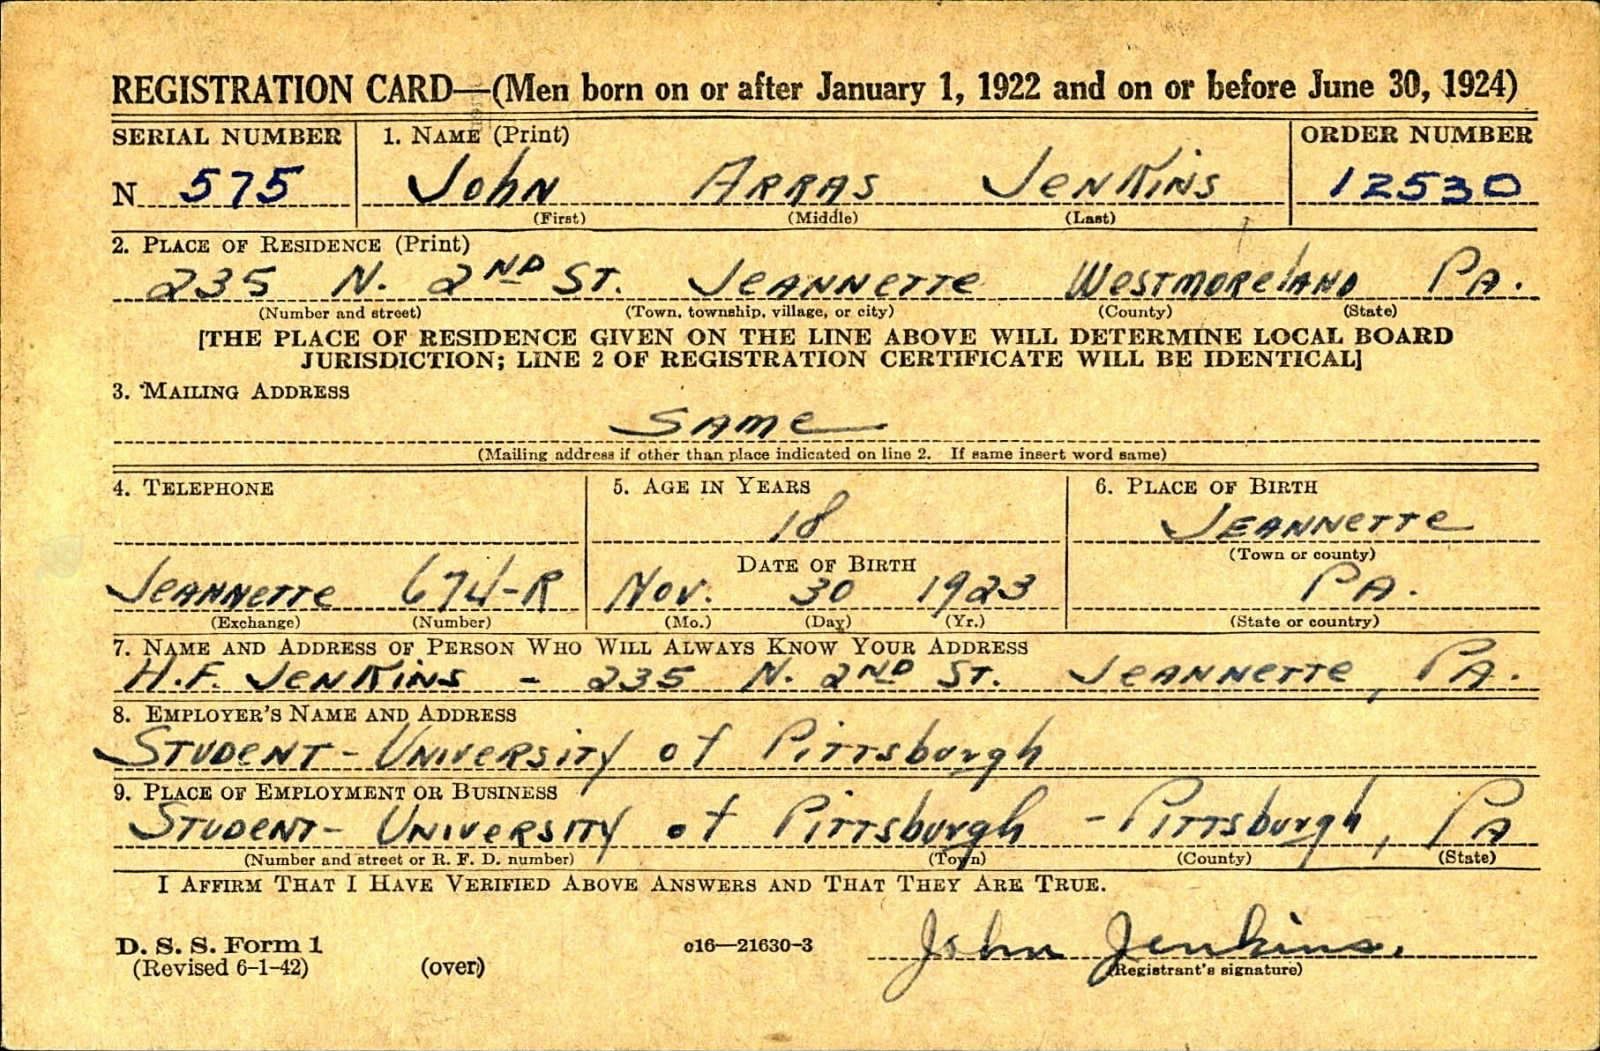 REGISTRATION CARD—(Men born on or after January 1, 1922 and on or before June 30, 1924)
SERIAL NUMBER 1. NAME (Print) ORDER NUMBER
N 575 JOHN ARRAS JENKINS 12530
(First) (Middle) (Last)
2. PLACE OF RESIDENCE (Print)
235 N. 2ND ST. JEANNETTE WESTMORELAND PA.
(Number and street) (Town, township, village, or city) (County) (State)
[THE PLACE OF RESIDENCE GIVEN ON THE LINE ABOVE WILL DETERMINE LOCAL BOARD
JURISDICTION; LINE 2 OF REGISTRATION CERTIFICATE WILL BE IDENTICAL]
3. MAILING ADDRESS
SAME
(Mailing address if other than place indicated on line 2. If same insert word same)
4. TELEPHONE 5. AGE IN YEARS 6. PLACE OF BIRTH
18 JEANNETTE
DATE OF BIRTH (Town or county)
JEANNETTE 674-R NOV. 30 1923 PA.
(Exchange) (Number) (Mo.) (Day) (Yr.) (State or country)
7. NAME AND ADDRESS OF PERSON WHO WILL ALWAYS KNOW YOUR ADDRESS
H.F. JENKINS - 235 N. 2ND ST. JEANNETTE, PA.
8. EMPLOYER'S NAME AND ADDRESS
STUDENT - UNIVERSITY of Pittsburgh
9. PLACE OF EMPLOYMENT OR BUSINESS
STUDENT - UNIVERSITY of Pittsburgh - Pittsburgh, PA
(Number and street or R. F. D. number) (Town) (County) (State)
I AFFIRM THAT I HAVE VERIFIED ABOVE ANSWERS AND THAT THEY ARE TRUE.
D. S. S. Form 1 c16—21630-3 John Jenkins.
(Revised 6-1-42) (over) (Registrant's signature)